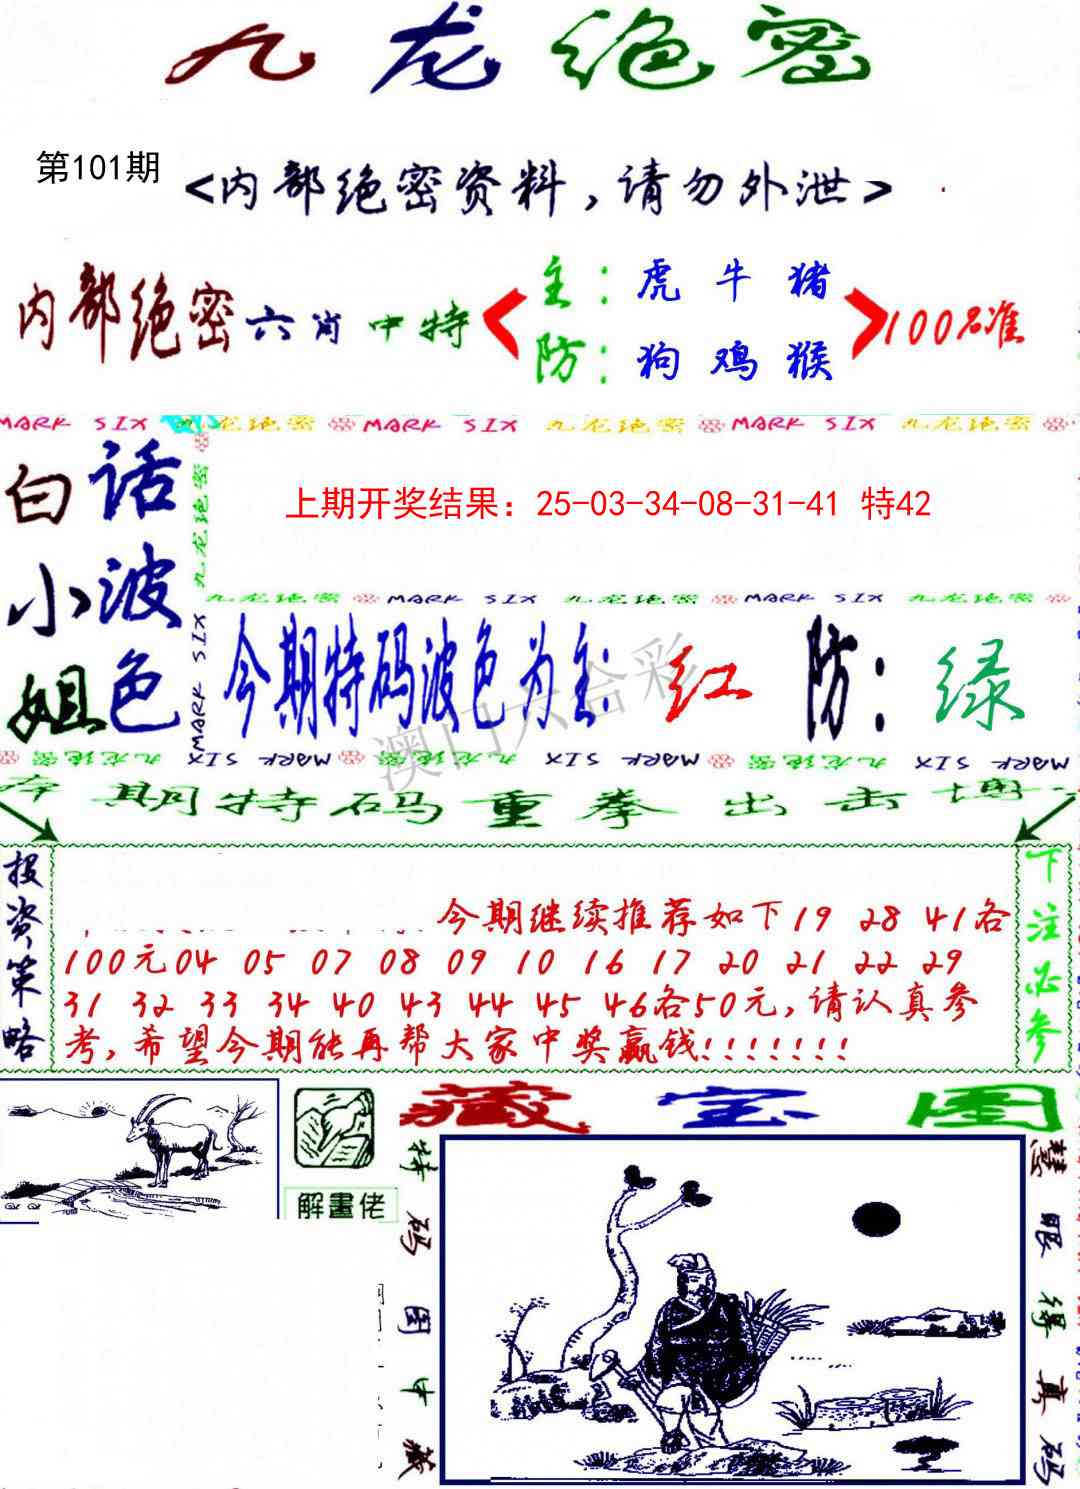 九龙绝密
第101期
<内部绝密资料,请勿外泄>
内部绝密六肖中特
主:虎 牛 猪
防:狗 鸡 猴
100%准
MARK SIX 九龙绝密 MARK SIX 九龙绝密 MARK SIX 九龙绝密
九龙绝密
MARK SIX
白小姐
话波色
上期开奖结果：25-03-34-08-31-41 特42
九龙绝密 MARK SIX 九龙绝密 MARK SIX 九龙绝密
今期特码波色为主:红 防:绿
澳门六合彩
九龙绝密 MARK SIX 九龙绝密 MARK SIX 九龙绝密 MARK SIX
期特码重拳出击
投资策略
今期继续推荐如下19 28 41各
100元04 05 07 08 09 10 16 17 20 21 22 29
31 32 33 34 40 43 44 45 46各50元,请认真参
考,希望今期能再帮大家中奖赢钱!!!!!!!
下注必参
藏宝图
解畫佬
特码图中藏
慧眼得真码